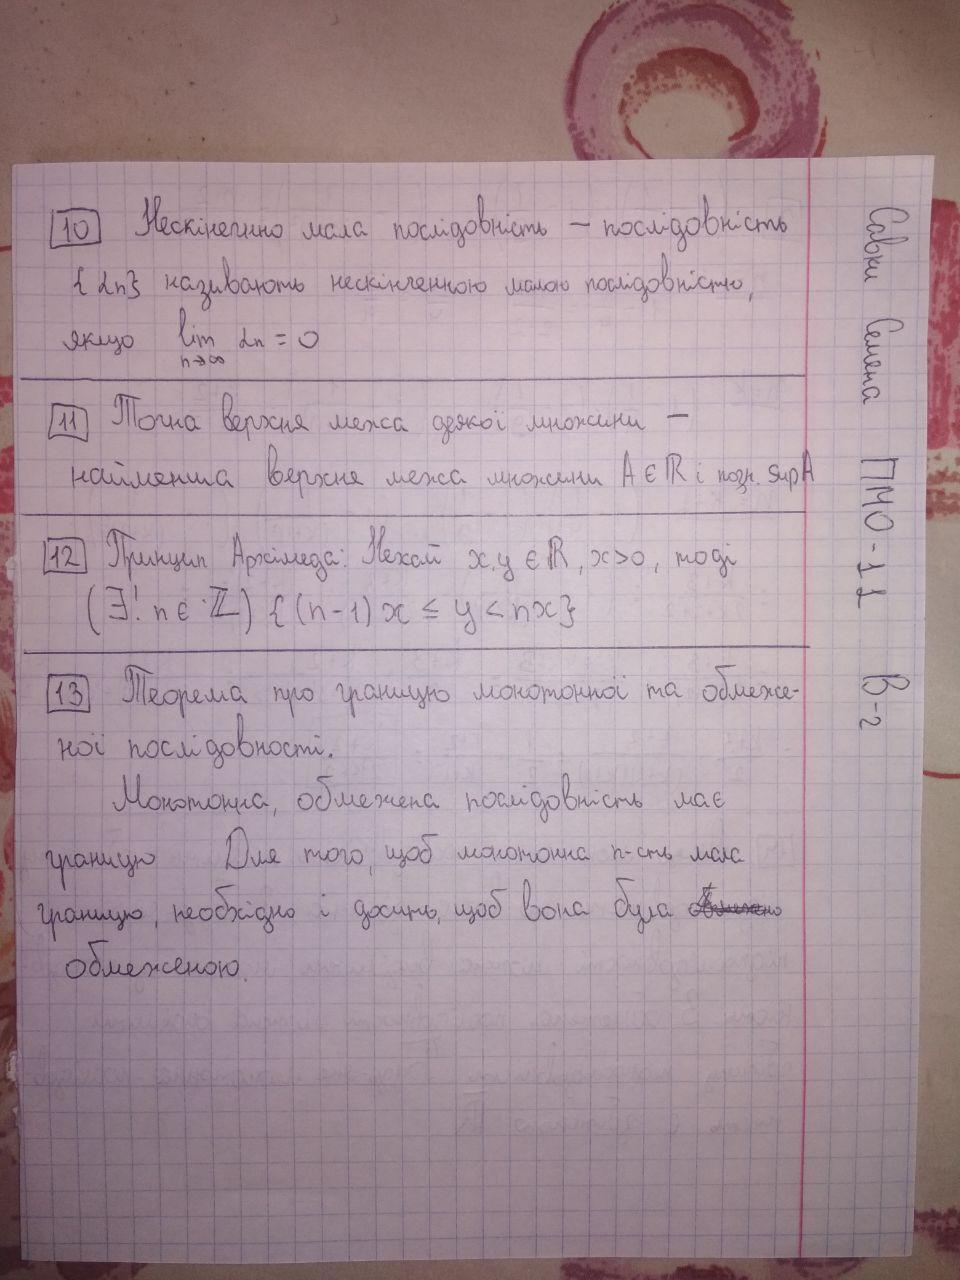 10 Нескінечно мала послідовність – послідовність
{αn} називають нескінченною малою послідовністю,
якщо lim n→∞ αn = 0
11 Точна верхня межа деякої множини –
найменша верхня межа множини A ∈ ℝ і позн. sup A
12 Принцип Архімеда: Нехай x, y ∈ ℝ, x>0, тоді
(∃! n ∈ ℤ) {(n-1)x ≤ y < nx}
13 Теорема про границю монотонної та обмеже-
ної послідовності.
Монотонна, обмежена послідовність має
границю Для того, щоб монотонна п-сть мала
границю, необхідно і досить, щоб вона була
обмеженою.
Савки Семена ПМО-11 В-2